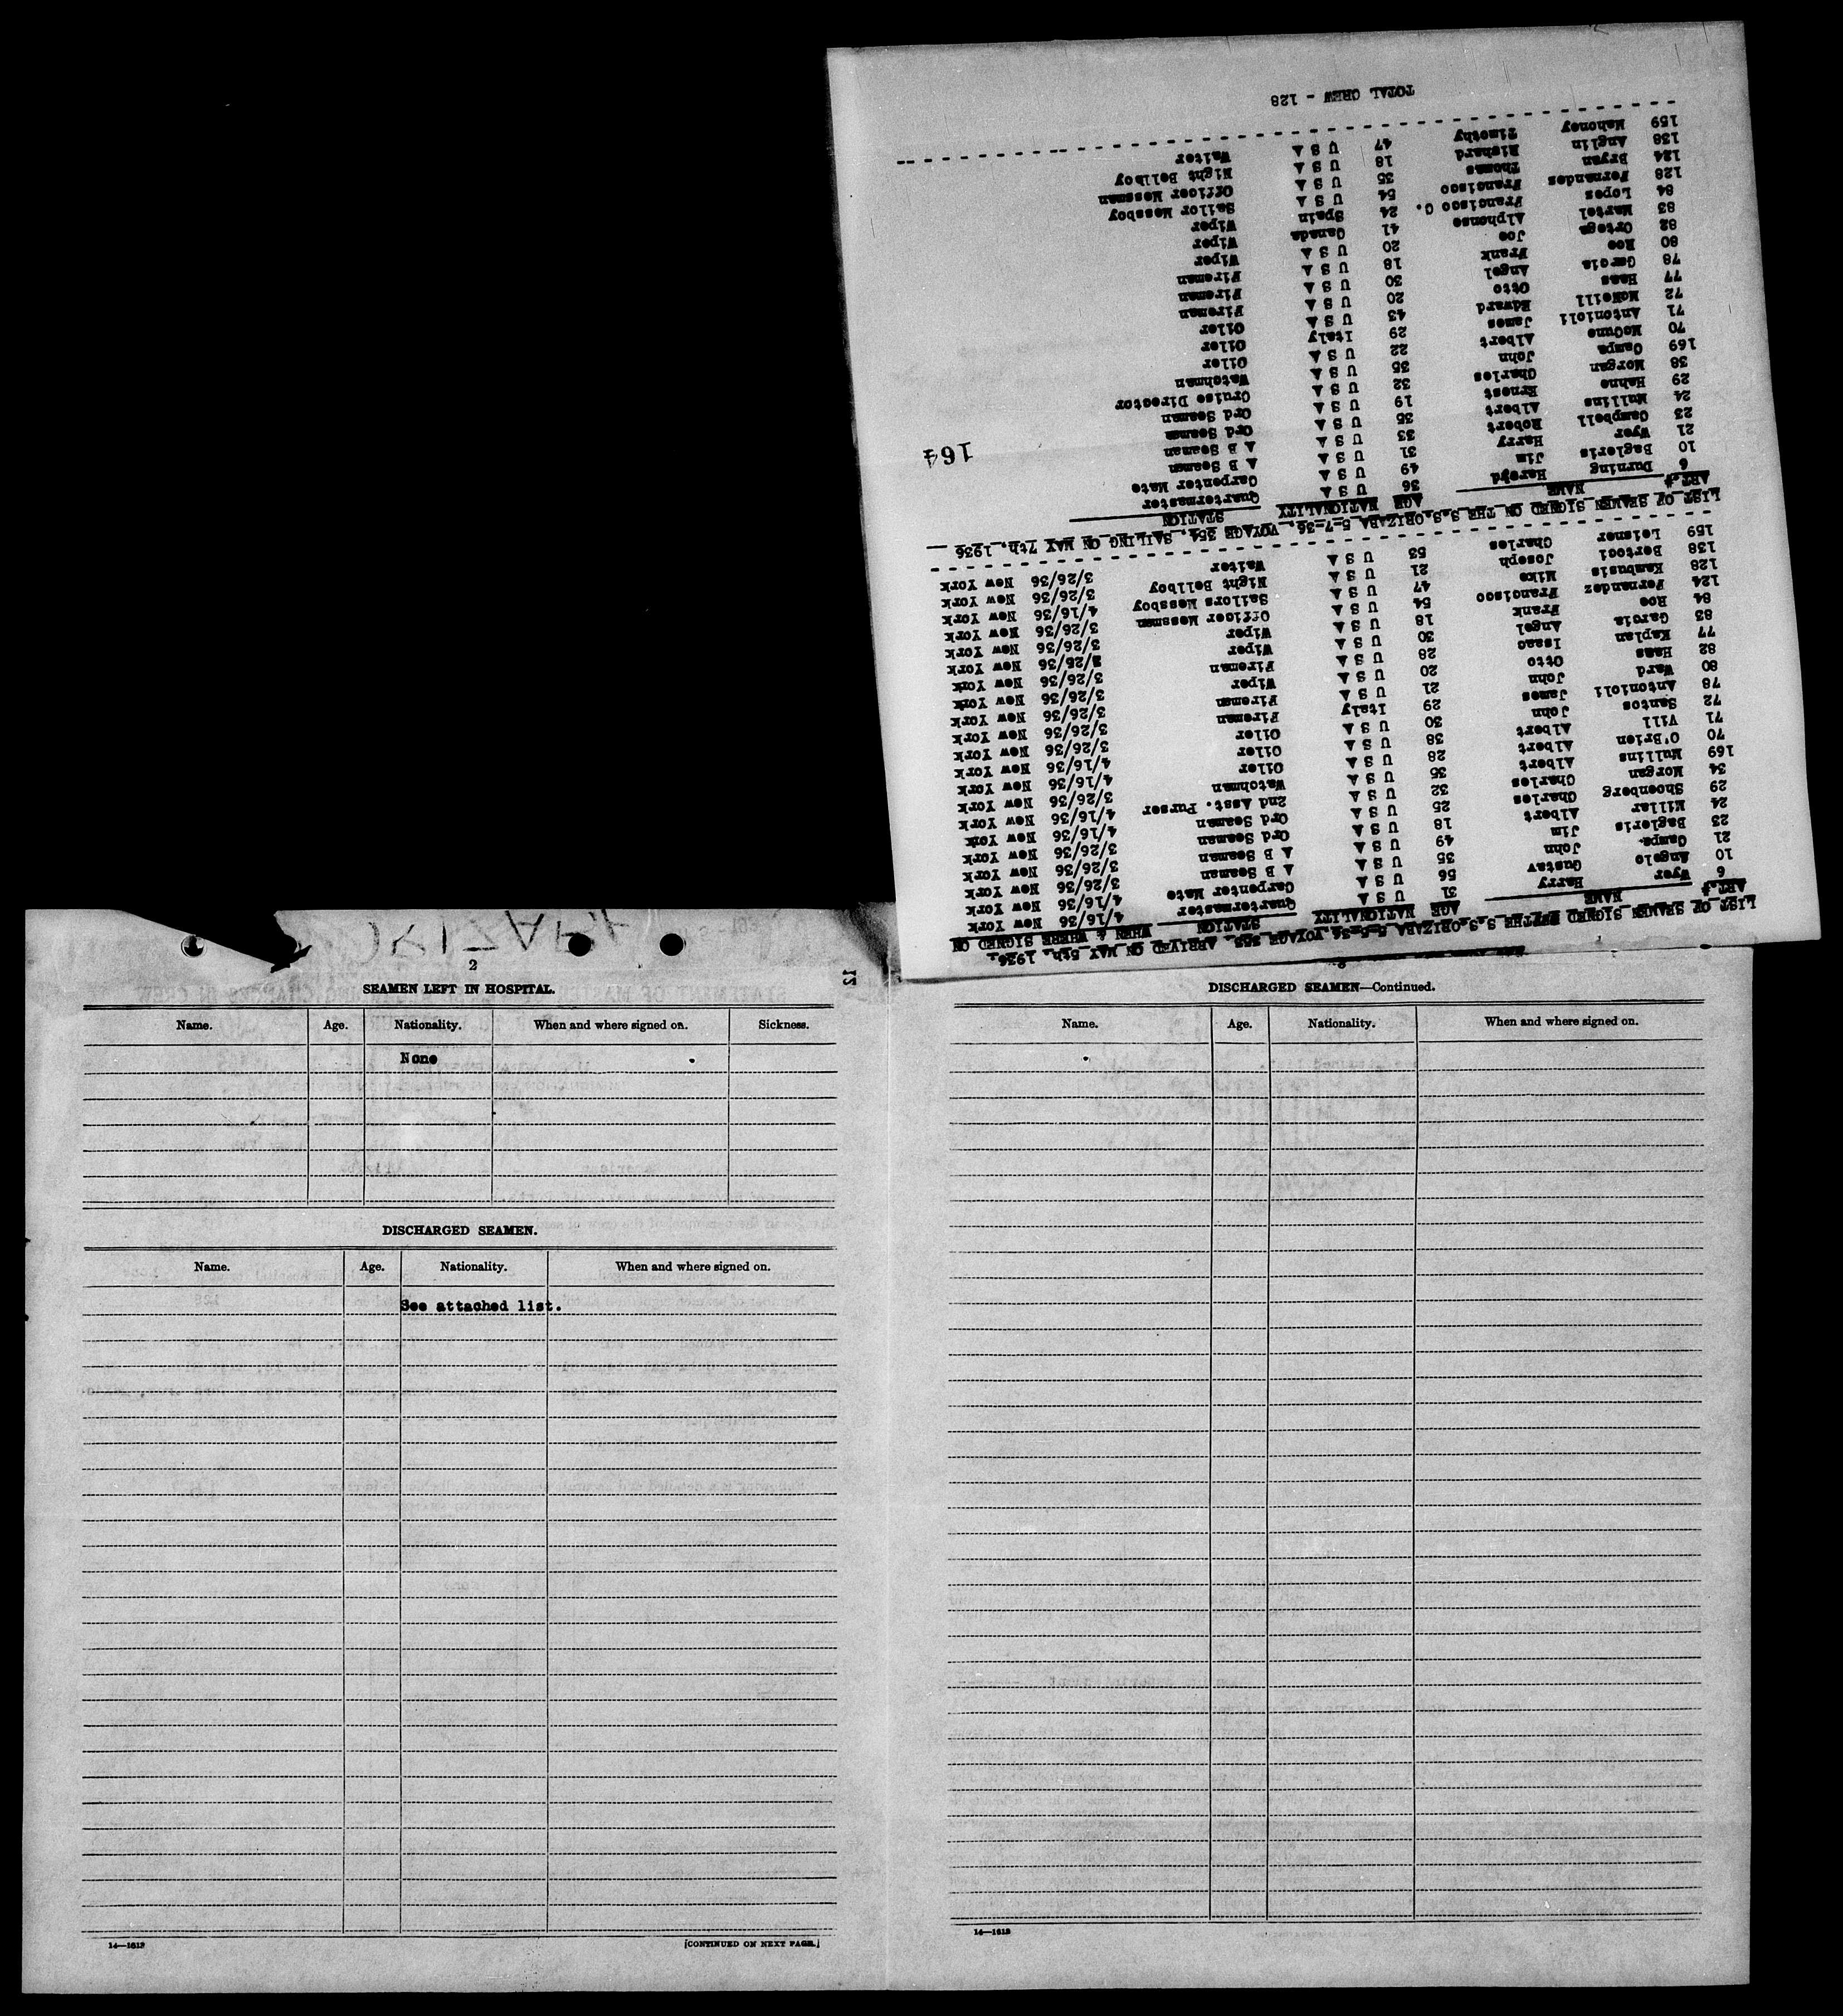 LIST OF SEAMEN SIGNED OFF THE S.S. ORIZABA 5-5-36 VOYAGE 353, ARRIVED ON MAY 5th, 1936.
ART.# NAME AGE NATIONALITY STATION WHEN & WHERE SIGNED ON
6 Wyer Harry 31 U S A Quartermaster 4/16/36 New York
10 Angelo Gustav 56 U S A Carpenter Mate 4/16/36 New York
21 Campa John 35 U S A A B Seaman 3/26/36 New York
23 Bagleris Jim 49 U S A A B Seaman 3/26/36 New York
24 Millar Albert 18 U S A Ord Seaman 3/26/36 New York
29 Shoenberg Charles 25 U S A Ord Seaman 4/16/36 New York
34 Morgan Charles 32 U S A 2nd Asst. Purser 4/16/36 New York
169 Mullins Albert 35 U S A Watchman 3/26/36 New York
70 O'Brien Albert 28 U S A Oiler 4/16/36 New York
71 Vill Albert 38 U S A Oiler 4/16/36 New York
72 Santos John 30 U S A Oiler 3/26/36 New York
78 Antonioli James 29 Italy Fireman 3/26/36 New York
80 Ward John 21 U S A Fireman 3/26/36 New York
82 Haas Otto 20 U S A Wiper 3/26/36 New York
77 Kaplan Isaac 28 U S A Fireman 3/26/36 New York
83 Garcia Angel 30 U S A Wiper 3/26/36 New York
84 Roe Frank 18 U S A Wiper 3/26/36 New York
124 Fernandez Francisco 54 U S A Officer Messman 3/26/36 New York
128 Kambusis Mike 47 U S A Sailors Messboy 4/16/36 New York
138 Bertoci Joseph 21 U S A Night Bellboy 3/26/36 New York
159 Leisner Charles 53 U S A Waiter 3/26/36 New York
LIST OF SEAMEN SIGNED ON THE S.S. ORIZABA 5-7-36, VOYAGE 354, SAILING ON MAY 7th, 1936
ART.# NAME AGE NATIONALITY STATION
6 Durning Harold 36 U S A Quartermaster
10 Bagleris Jim 49 U S A Carpenter Mate
21 Wyer Harry 31 U S A A B Seaman
23 Campbell Robert 33 U S A A B Seaman
24 Mullins Albert 35 U S A Ord Seaman
29 Hahne Ernest 19 U S A Ord Seaman
38 Morgan Charles 32 U S A Cruise Director
169 Campa John 35 U S A Watchman
70 McCune Albert 22 U S A Oiler
71 Antonioli James 29 Italy Oiler
72 McNeill Edward 43 U S A Oiler
77 Haas Otto 20 U S A Fireman
78 Garcia Angel 30 U S A Fireman
80 Roe Frank 18 U S A Fireman
82 Ortega Joe 20 U S A Wiper
83 Martel Alphonse 41 Canada Wiper
84 Lopes Francisco C. 24 Spain Wiper
128 Fernandes Francisco 54 U S A Sailor Messboy
124 Bryan Thomas 35 U S A Officer Messman
138 Anglin Richard 18 U S A Night Bellboy
159 Mahoney Timothy 47 U S A Waiter
TOTAL CREW - 128
164
ORIZABA
2
17
SEAMEN LEFT IN HOSPITAL.
Name. Age. Nationality. When and where signed on. Sickness.
None
DISCHARGED SEAMEN.
Name. Age. Nationality. When and where signed on.
See attached list.
14—1612
[CONTINUED ON NEXT PAGE.]
DISCHARGED SEAMEN—Continued.
Name. Age. Nationality. When and where signed on.
14—1612